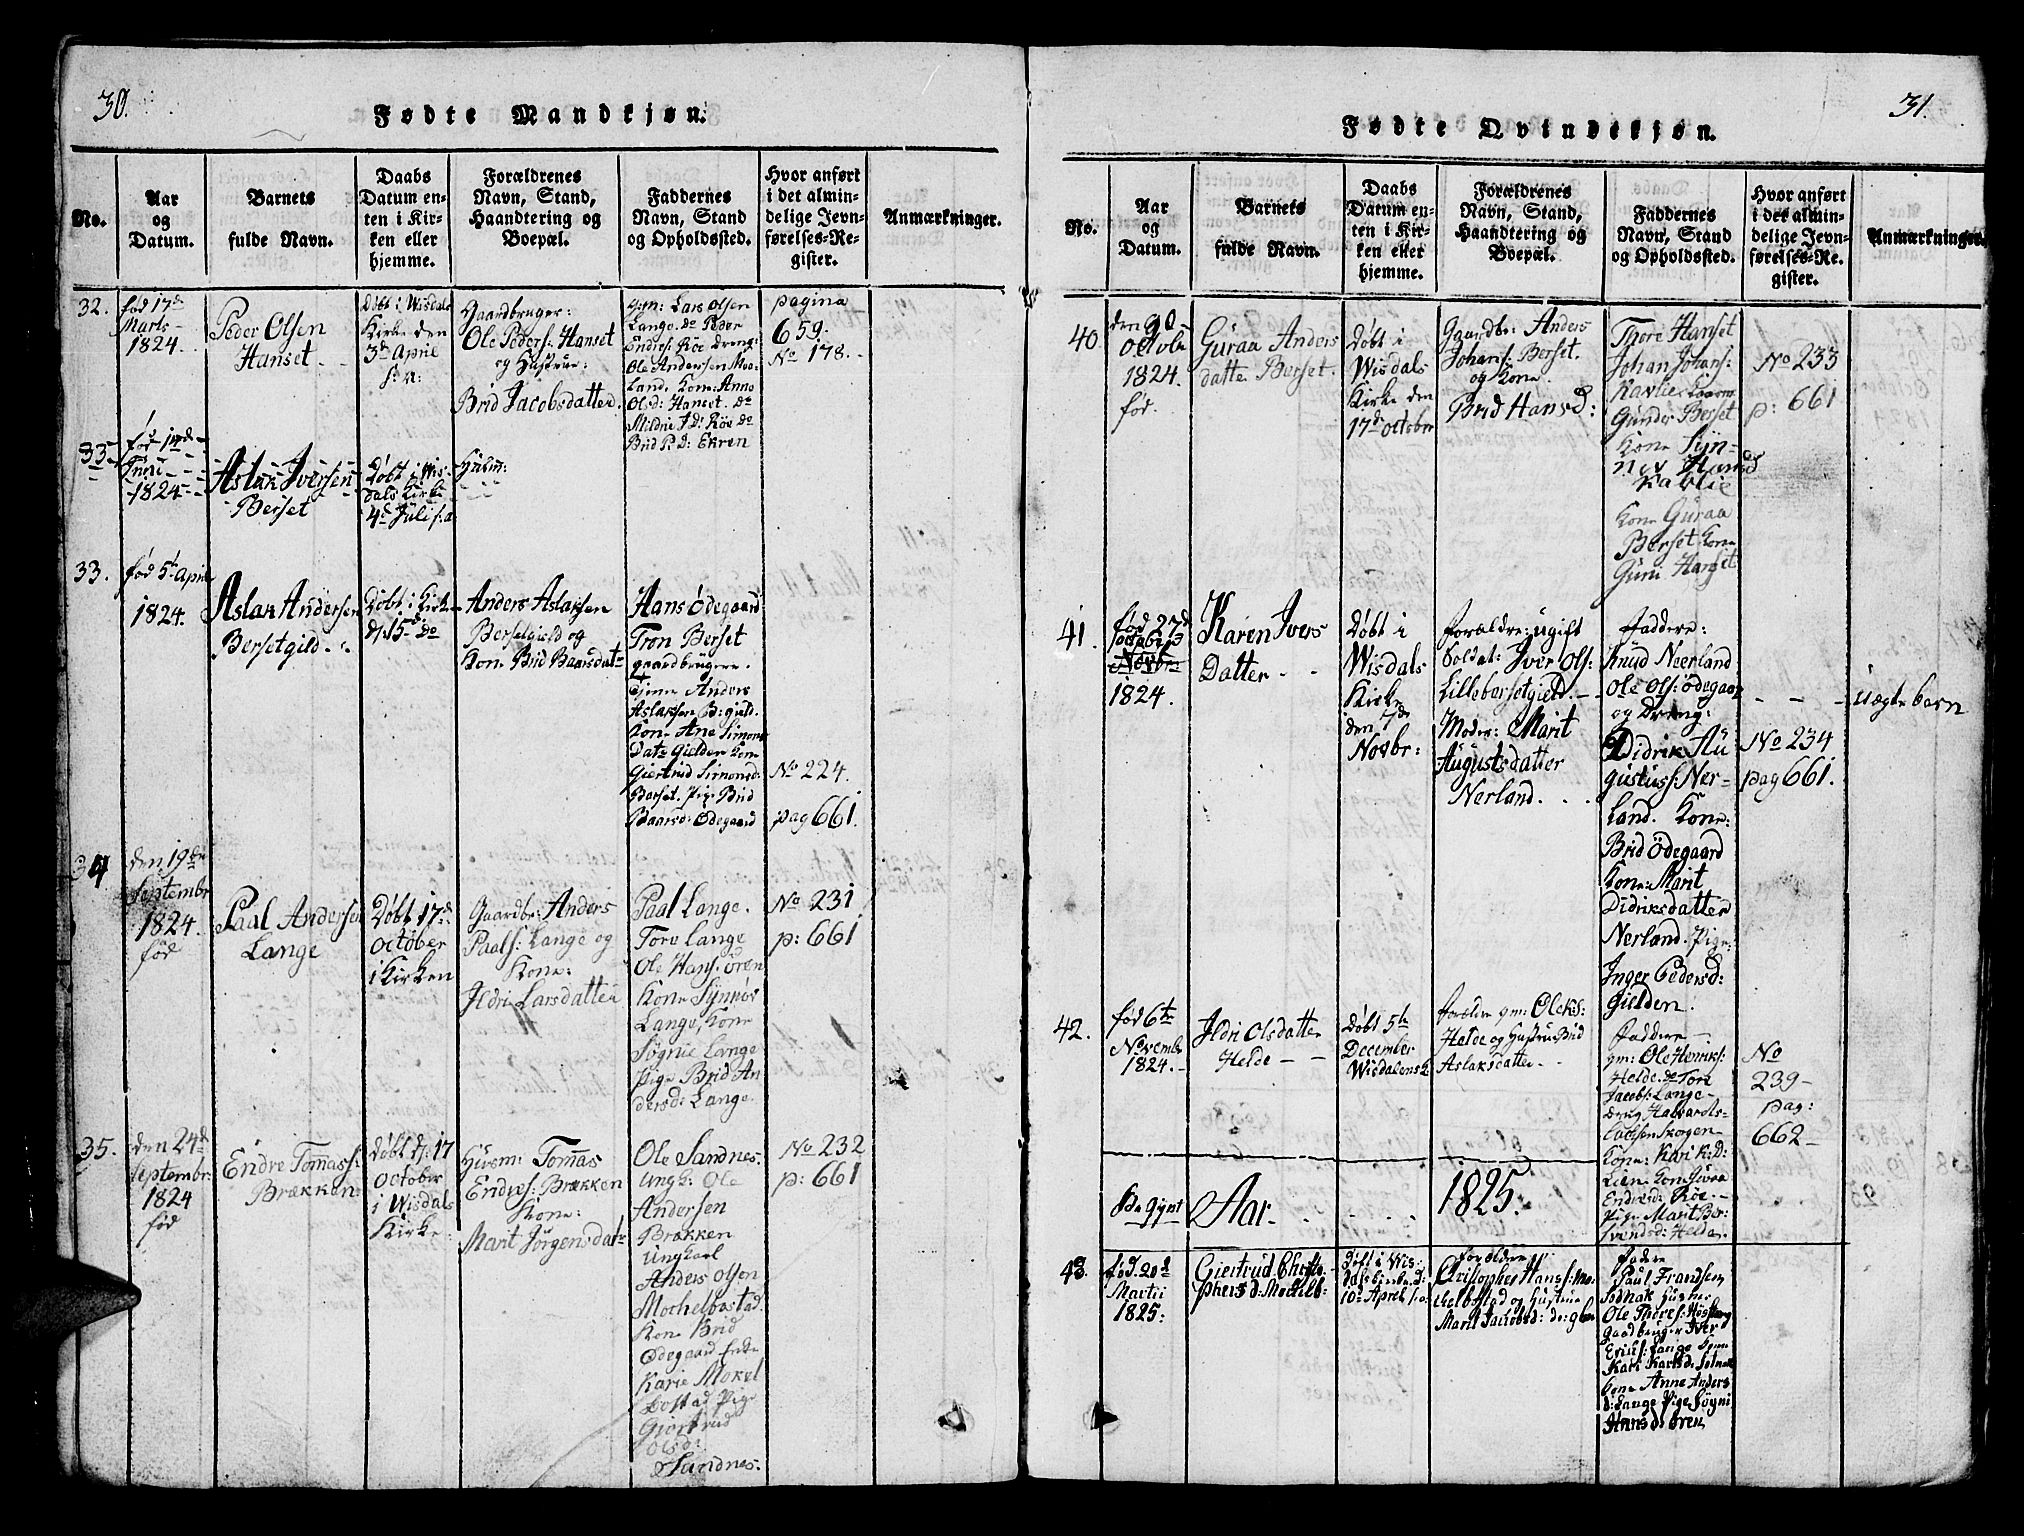 30.
Fødte Mandkjøn.
No.
Aar
og
Datum.
Barnets
fulde Navn.
Daabs
Datum en-
ten i Kir-
ken eller
hjemme.
Forældrenes
Navn, Stand,
Haandtering og
Boepæl.
Faddernes
Navn, Stand
og Opholdssted.
Hvor anført
i det almin-
delige Jevn-
førelses-Re-
gister.
Anmærkninger.
32.
fød 17d
Marts
1824.
Peder Olsen
Hanset
Døbt i Wisdals
Kirke den
3d April
s: a:
Gaardbruger:
Ole Peders: Hanset
og Hustrue:
Brid Jacobsdatter.
Lars Olsen
Lange. do Peder
Endres: Röe Dreng:
Ole Andersen Moe-
land. Kone: Anne
Olsd: Hanset. do
Mildrie J D: Röe do
Brid P. D: Ekren
pagina
659.
No 178.
33
fød 1de
Juni
1824
Aslak Iversen
Berset
Døbt i Wis-
dals Kirke
4d Juli s: a
Husm:
33.
fød 5t April
1824.
Aslak Andersen
Bersetgield.
Døbt i Kirke
d: 15 do
Anders Aslaksen
Bersetgield og
Kone Brid Baarsdatr
Hans Ödegaard
Tron Berset
gaardbrugere.
Tjener Anders
Aslaksen B: gield.
Kone Ane Simons
Datr Gielden Kone
Giertrud Simonsd:
Berset. Pige Brid
Baarsd: Ödegaard
No 224.
pag 661.
34
den 19de
Septembr
1824.
fød
Paal Andersen
Lange
Døbt 17d
October
i Kirken
Gaardbr: Anders
Paals: Lange og
Kone:
Ildri Larsdatter
Paal Lange.
Tore Lange
Ole Hans: Ören
Kone Synnöv
Lange, Kone
Søgnie Lange
Pige Brid An
dersd: Lange.
No 231
p: 661
35.
den 24d
Septembr:
1824
fød
Endre Tomass:
Brækken
Døbt d: 17
October
i Wisdals
Kirke
Husm: Tomas
Endres: Brækken
Kone:
Marit Jörgensdatr
Ole Sandnes.
Ungk: Ole
Andersen
Brækken
Ungkarl
Anders Olsen
Mochelbostad.
Kone Brid
Ödegaard Enke
Karie Mokel
bostad Pige
Giertrud
Olsd:
Sandnes.
No 232
p: 661
31.
Fødte Qvindekjøn.
No.
Aar
og
Datum.
Barnets
fulde Navn.
Daabs
Datum en-
ten i Kir-
ken eller
hjemme.
Forældrenes
Navn, Stand,
Haandtering og
Boepæl.
Faddernes
Navn, Stand
og Opholdssted.
Hvor anført
i det almin-
delige Jevn-
førelses-Re-
gister.
Anmærkninger.
40
Octobr
1824.
fød.
Guraa Anders
datter Berset.
Døbt i
Wisdals
Kirke den
17d October
Gaardbr: Anders
Johans: Berset.
og Kone.
Brid Hansd:
Thore Hanset
Johan Johans:
Kavlie Kaarre
Gunder Berset
Kone Syn-
nev Hansd
Kavlie
Kone Guraa
Berset Kone
Guri Hanset
No 233
p: 661
41.
fød 27d
October
Novbr:
1824.
Karen Ivers
Datter
Døbt i
Wisdals
Kirke
den 7de
Novbr:
forældre: ugift
Soldat: Iver Ols:
Lillebersetgield.
Moder: Marit
Augustsdatter
Nerland.
Faddere:
Knud Neerland
Ole Ols: Ödegaar
og Dreng:
Didrik Au
gustuss: Ner-
land. Kone:
Brid Ödegaard
Kone: Marit
Didriksdatter
Nerland. Pige:
Inger Pedersd:
Gielden.
No 234
pag 661.
uægte barn
42.
fød 6te
Novembr
1824.
Ildri Olsdatter
Helde
Døbt 5te
December
Wisdalensk
forældre gm: Ole Ks:
Helde og Hustrue Brid
Aslaksdatter
Faddere
gm: Ole Henriks:
Helde. do Tore
Jacobs: Lange
dreng Halvard
Larsen Skogen
Kone: Kari K: D:
Lien Kone Guraa
Endresd: Röe.
Pige Marit Ber:
Svendsd: Helde
No
239
pag:
662
Begynt
Aar
1825.
43.
fød. 20d
Martii
1825.
Giertrud Christo-
phersd: Mochelb:
Døbt i Wis:
10de April s: a:
forældre
Christopher Hans: Mo-
chelbostad og Hustrue
Marit Jacobsd:
fadere
Paul Frandsen
Solnak Husm:
Ole Thores:
gaadbruger Iver
Erics: Lange
Kari Karlsd:
Kone Anne Anders
d: Lange Pige Søgni
Hansd: Øren